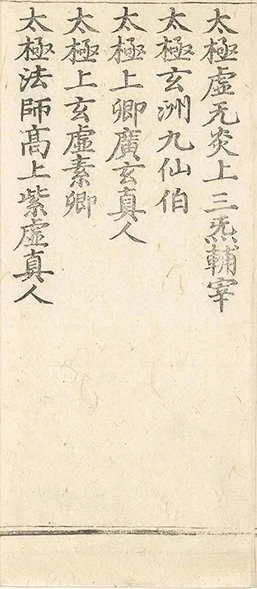 太極虛无炎上三炁輔宰
太極玄洲九仙伯
太極上卿廣玄真人
太極上玄虛素卿
太極法師高上紫虛真人